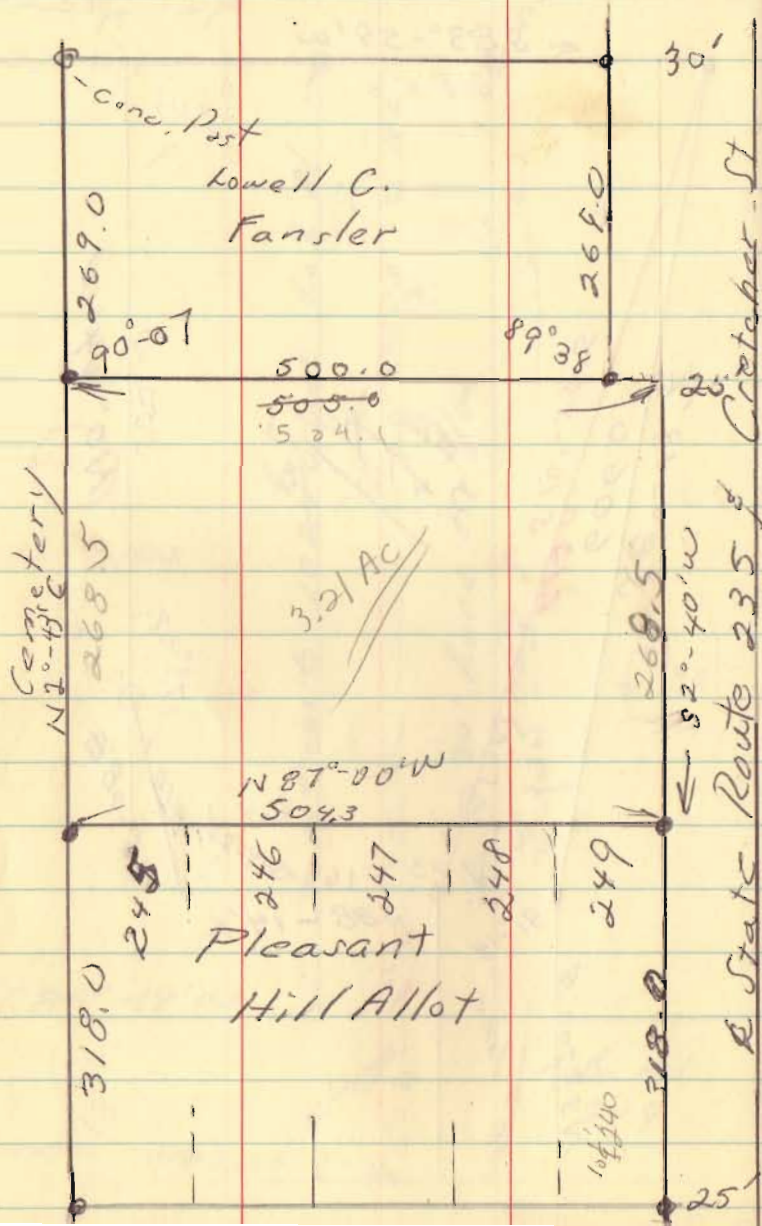 30'
Conc. Post
Lowell C.
Fansler
269.0
269.0
90°-07
89°38
500.0
505.0
504.1
25'
Cemetery
N2°-43'E
268.5
3.21 Ac
268.5
S2°-40'W
N87°-00'W
504.3
245
246
247
248
249
Pleasant
Hill Allot
318.0
318.0
25'
State Route 235 & Cretcher St